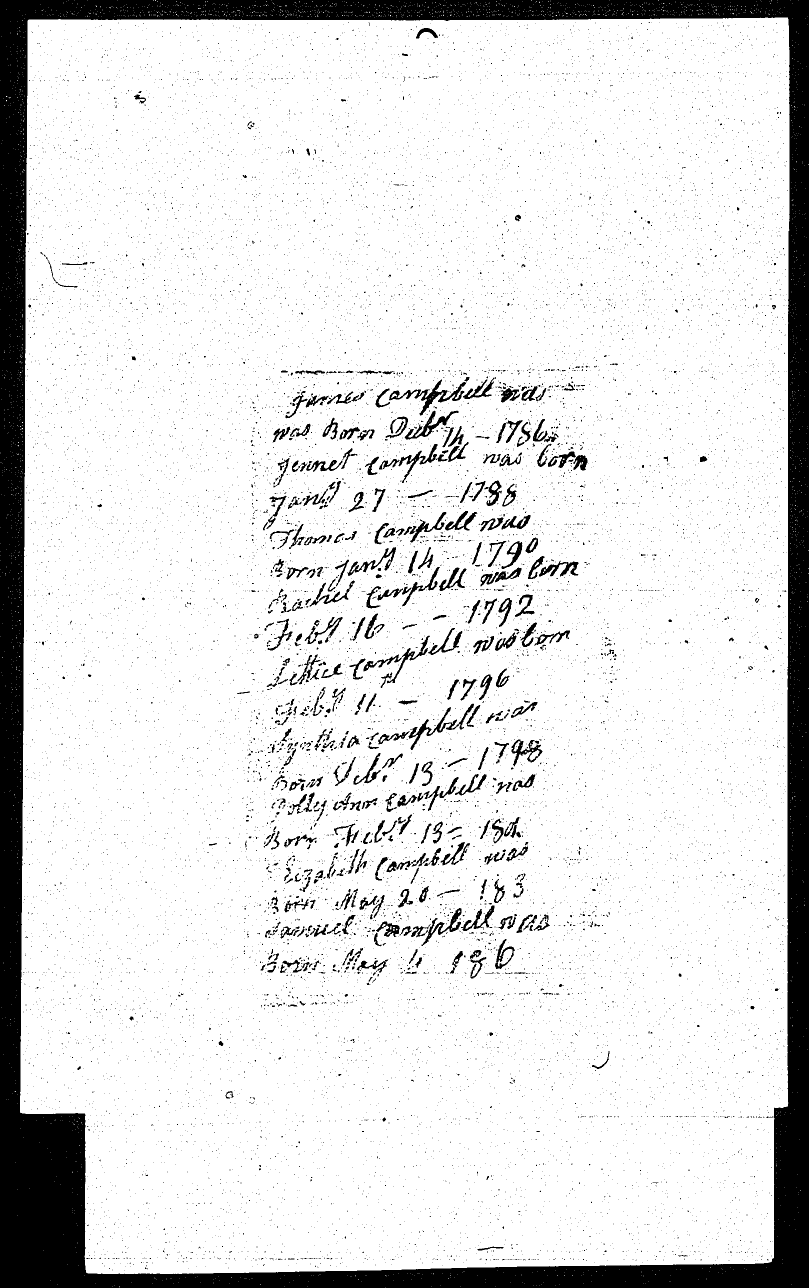 James Campbell was
was Born Decbr 14 - 1786
Jennet Campbell was born
Jany 27 - 1788
Thomas Campbell was
Born Jany 14 - 1790
Rachel Campbell was born
Feby 16 - - 1792
Lettice Campbell was born
Feby 11th - 1796
Synthia Campbell was
Born Decbr 13 - 1798
Polly Ann Campbell was
Born Feby 13 -
Elizabeth Campbell was
Born May 20 - 183
Samuel Campbell was
Born May 4 186